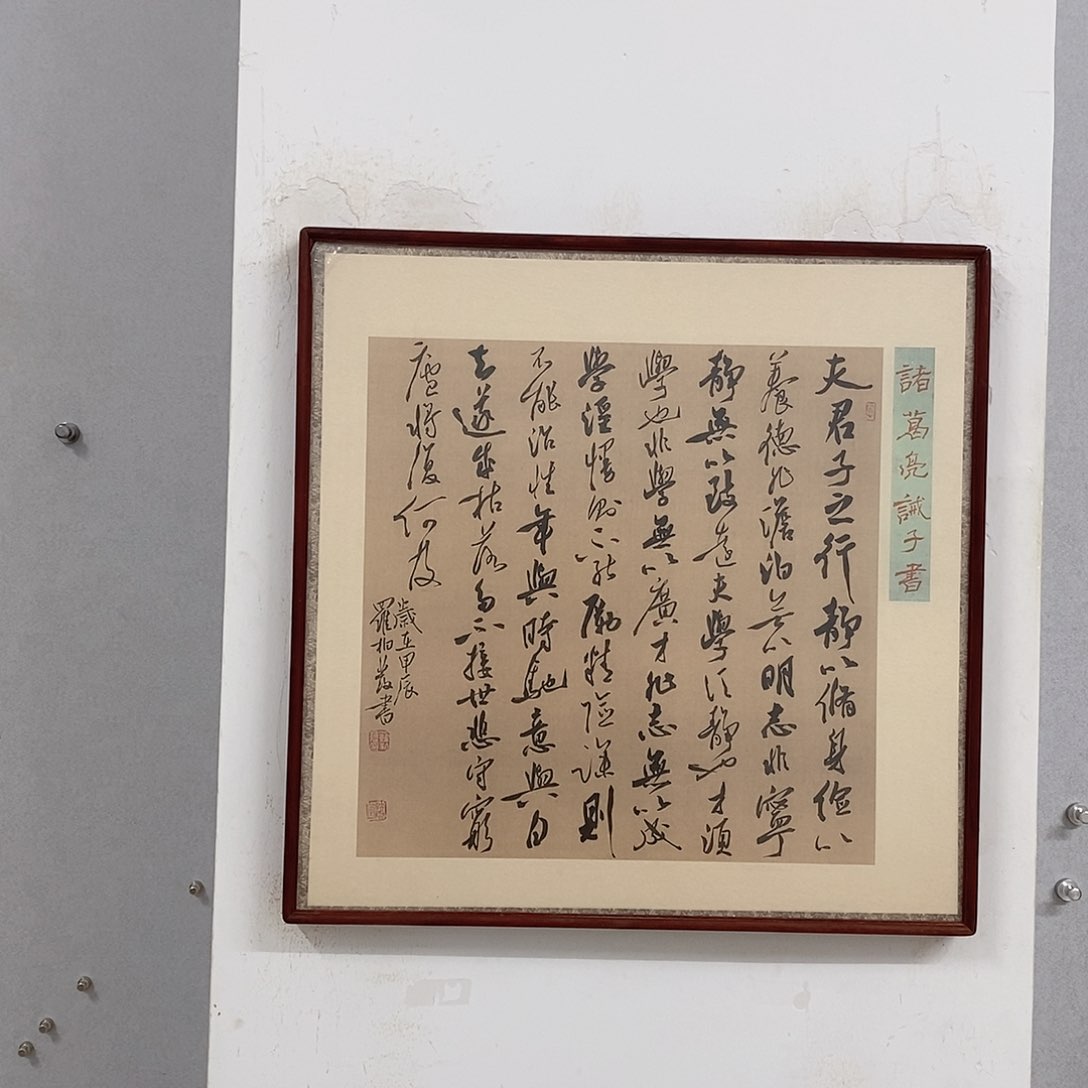 諸葛亮誡子書
夫君子之行静以脩身儉以
養德非澹泊無以明志非寧
静無以致遠夫學須静也才須
學也非學無以廣才非志無以成
學淫慢則不能勵精險躁則
不能治性年與時馳意與日
去遂成枯落多不接世悲守窮
廬將復何及
歲在甲辰
羅柏書